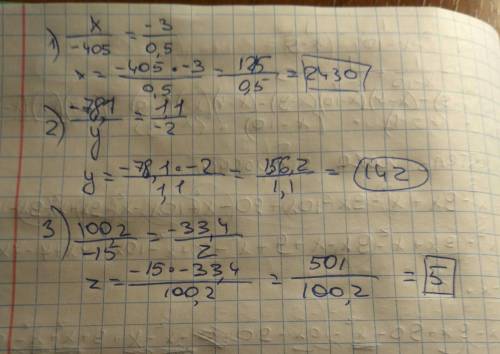 1) x/-405 = -3/0,5
x = -405·-3/0,5 = 1215/0,5 = 2430
2) -78,1/y = 1,1/-2
y = -78,1·-2/1,1 = 156,2/1,1 = 142
3) 100,2/-15 = -33,4/z
z = -15·-33,4/100,2 = 501/100,2 = 5